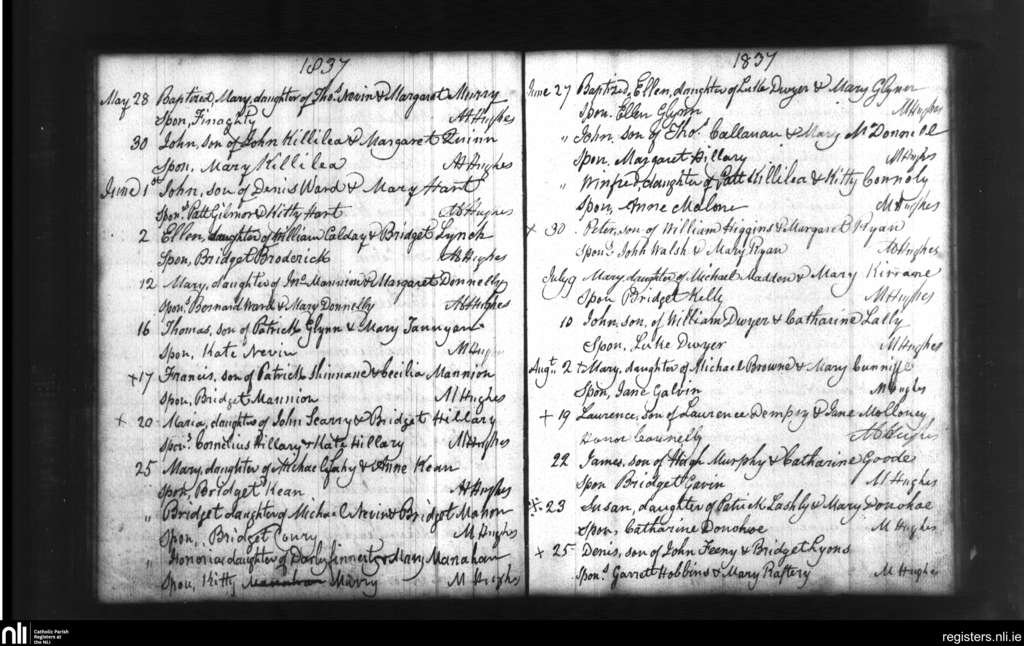 1837
May 28 Baptized, Mary, daughter of Thos. Nevin & Margaret Murry
Spon, Finaghty M Hughes
30 John, son of John Killilea & Margaret Quinn
Spon, Mary Killilea M Hughes
June 1st John, son of Denis Ward & Mary Hart
Spons. Patt Gilmore & Kitty Hart M Hughes
2 Ellen, daughter of William Calday & Bridget Lynch
Spon, Bridget Broderick M Hughes
12 Mary, daughter of Jno. Mannion & Margaret Donnelly
Spons. Bernard Ward & Mary Donnelly M Hughes
16 Thomas, son of Patrick Glynn & Mary
Spon, Kate Nevin M Hughes
+17 Francis, son of Patrick Shinnane & Cecilia Mannion
Spon, Bridget Mannion M Hughes
+ 20 Maria, daughter of John Scarry & Bridget Hillary
Spons. Cornelius Hillary & Kate Hillary M Hughes
25 Mary, daughter of Michael Fahy & Anne Kean
Spon, Bridget Kean M Hughes
" Bridget daughter of Michael Nevin & Bridget Mahon
Spon, Bridget Conry M Hughes
" Honoria daughter of Darby & Mary Manahan
Spon, Kitty M Hughes
1837
June 27 Baptized, Ellen, daughter of Luke Dwyer & Mary Glynn
Spon. Ellen Glynn M Hughes
" John, son of Thos. Callanan & Mary McDonnell
Spon, Margaret Hillary M Hughes
" Winifred, daughter of Patt Killilea & Kitty Connoly
Spon, Anne Malone M Hughes
+ 30 Peter, son of William Higgins & Margaret Ryan
Spons. John Walsh & Mary Ryan M Hughes
July 9 Mary, daughter of Michael Madden & Mary Kirrane
Spon Bridget Kelly M Hughes
10 John, son, of William Dwyer & Catharine Lally
Spon. Luke Dwyer M Hughes
Augt. 2 + Mary, daughter of Michael Browne & Mary Cunniffe
Spon, Jane Galvin M Hughes
+ 19 Laurence, son of Laurence Dempsy & Jane Molloney
Honor Connelly M Hughes
22 James, son of Hugh Murphy & Catharine Goode
Spon Bridget Gavin M Hughes
+ 23 Susan, daughter of Patrick Lashly & Mary Donohoe
Spon, Catharine Donohoe M Hughes
+ 25 Denis, son of John Feeny & Bridget Lyons
Spons. Garrett Hobbins & Mary Raftery M Hughes
nli Catholic Parish
Registers at
the NLI
registers.nli.ie